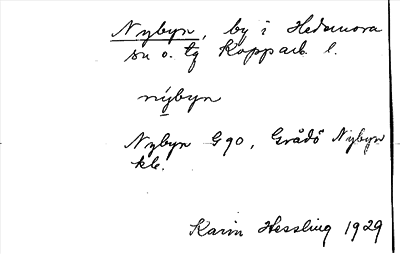 Nybyn, by i Hedemora
sn o. tg Kopparb. l.
nýbyn
Nybyn G90, Grådö Nybyn
kb.
Karin Hessling 1929